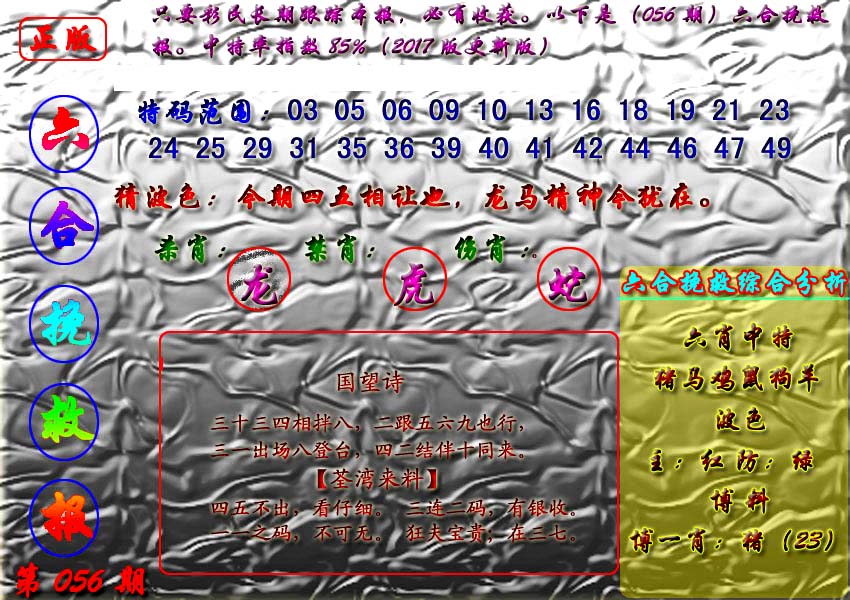 正版
只要彩民长期跟踪本报，必有收获。以下是（056期）六合挽救
报。中特率指数85%（2017版更新版）
六合挽救报
第056期
特码范围：03 05 06 09 10 13 16 18 19 21 23
24 25 29 31 35 36 39 40 41 42 44 46 47 49
猜波色：今期四五相让也，龙马精神今犹在。
杀肖：龙 禁肖：虎 伤肖：蛇。
国望诗
三十三四相拌八，二跟五六九也行，
三一出场八登台，四二结伴十同来。
【荃湾来料】
四五不出，看仔细。 三连二码，有银收。
一一之码，不可无。 狂夫宝贵；在三七。
六合挽救综合分析
六肖中特
猪马鸡鼠狗羊
波色
主：红防：绿
博料
博一肖：猪（23）